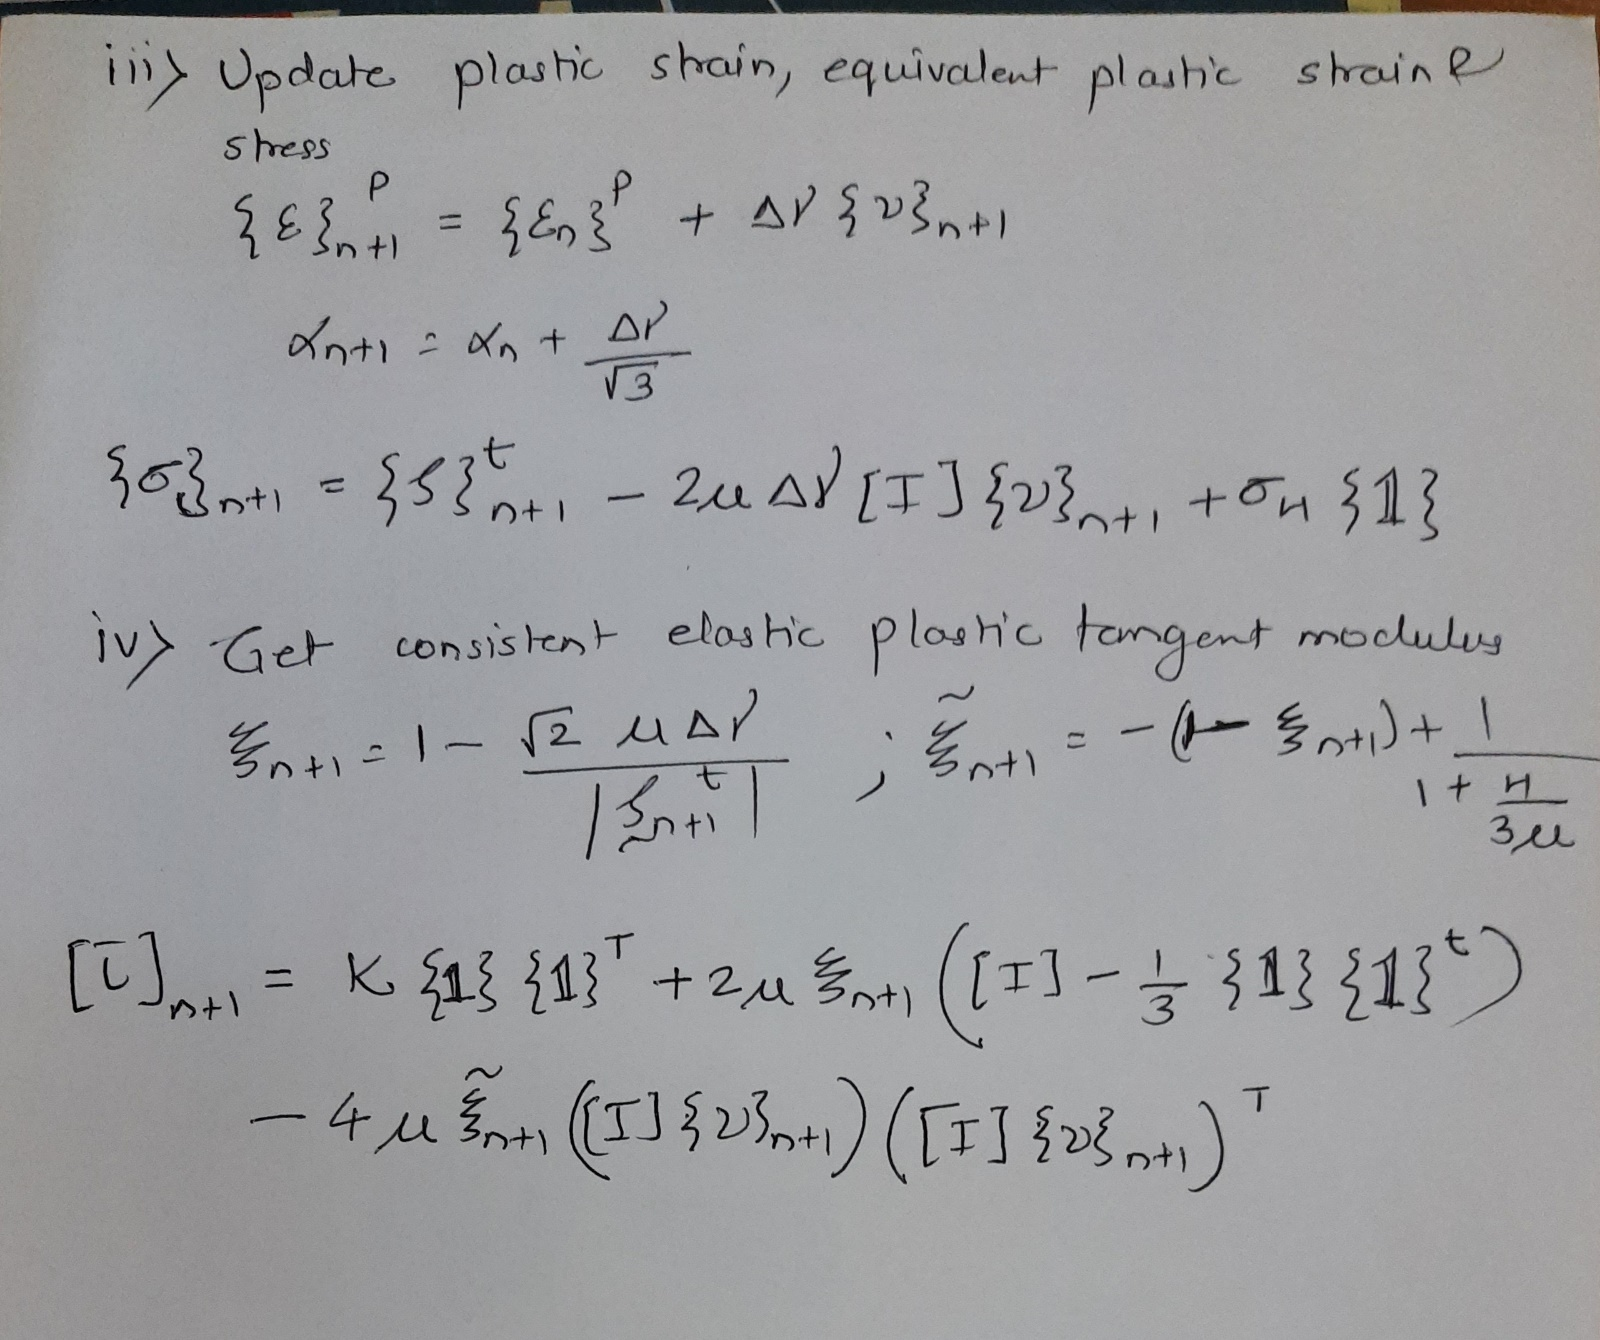 iii) Update plastic strain, equivalent plastic strain &
stress
{ε}ᵖₙ₊₁ = {εₙ}ᵖ + Δγ {ν}ₙ₊₁
αₙ₊₁ = αₙ + Δγ / √3
{σ}ₙ₊₁ = {S}ᵗₙ₊₁ - 2μ Δγ [I] {ν}ₙ₊₁ + σ_H {𝟙}
iv) Get consistent elastic plastic tangent modulus
ξₙ₊₁ = 1 - √2 μ Δγ / |Sₙ₊₁ᵗ| ; ξ̃ₙ₊₁ = -(1 - ξₙ₊₁) + 1 / (1 + H / 3μ)
[C]ₙ₊₁ = K {𝟙} {𝟙}ᵀ + 2μ ξₙ₊₁ ([I] - 1/3 {𝟙} {𝟙}ᵗ)
- 4μ ξ̃ₙ₊₁ ([I] {ν}ₙ₊₁) ([I] {ν}ₙ₊₁)ᵀ